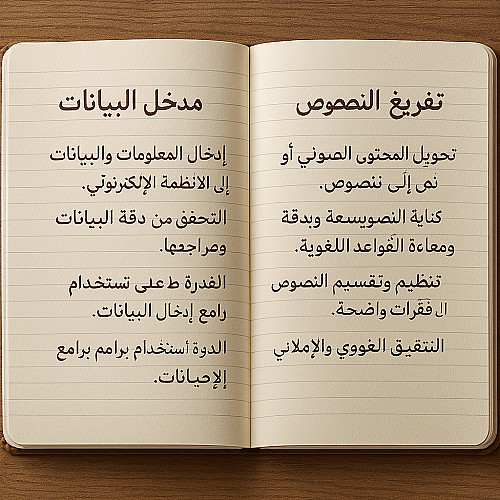 تفريغ النصوص
تحويل المحتوى الصوني أو
نص إلى ننصوص.
كناية النصويسعة وبدقة
ومعاءة القواعد اللغوية.
تنظيم وتقسيم النصوص
ال فقرات واضحة.
التنقيق الغووي والإملاني
مدخل البيانات
إدخال المعلومات والبيانات
إلى الانظمة الإلكترنوثي.
التحفق من دقة البيانات
ومراجعها.
القدرة ط على تستخدام
رامع إدخال البيانات.
الدوة أستخدام برامم برامع
الإحيانات.